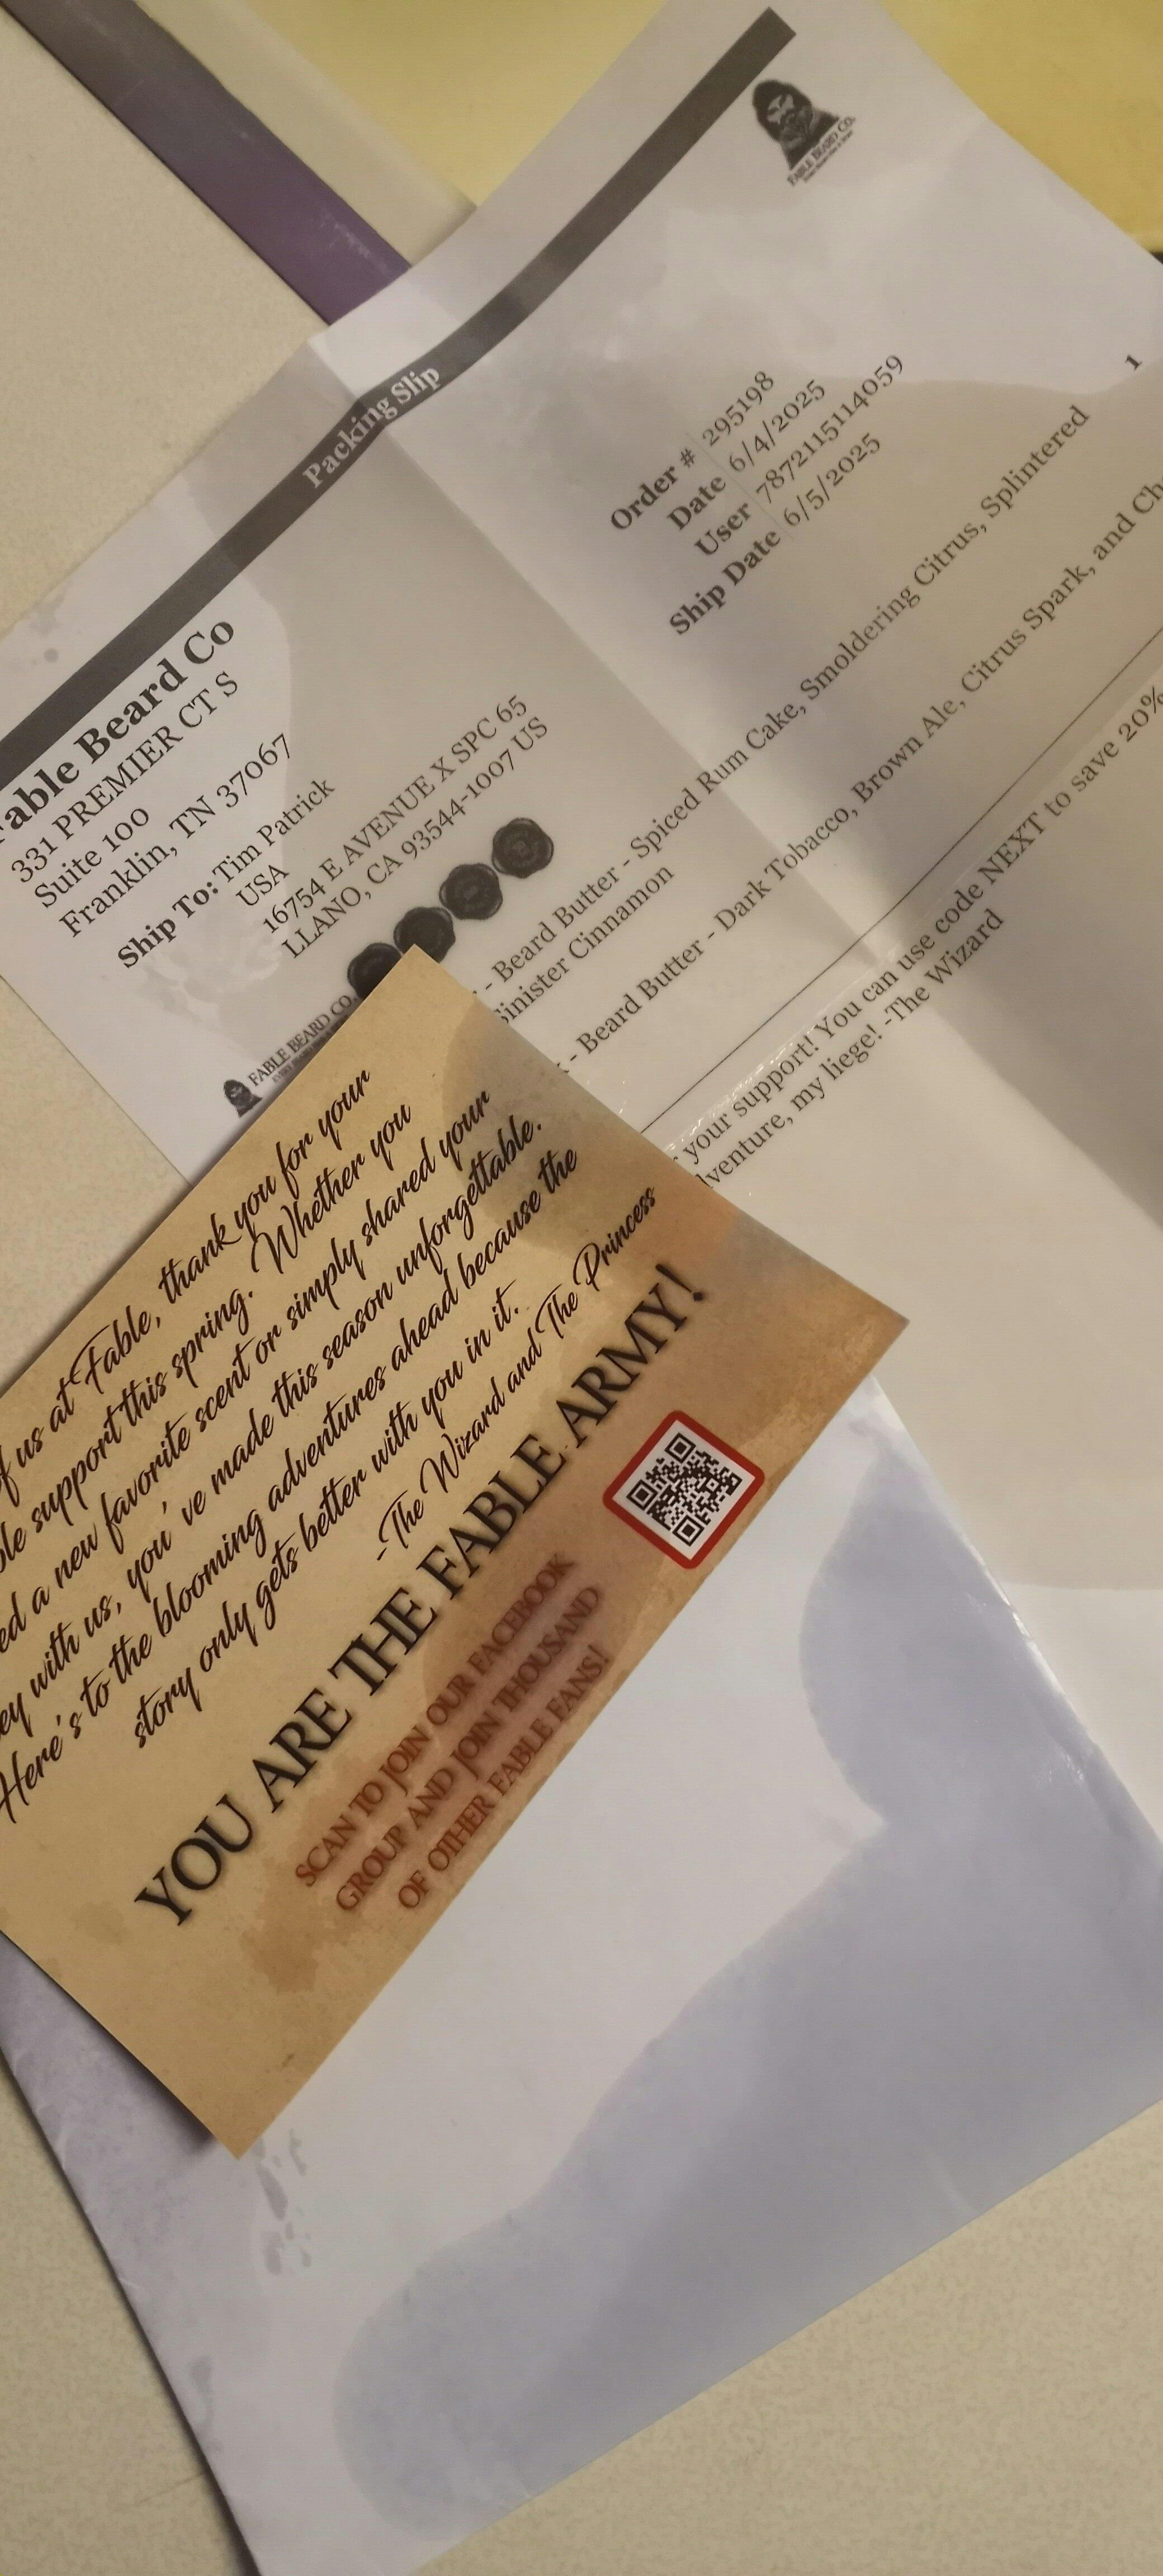 FABLE BEARD CO.
Packing Slip
Fable Beard Co
331 PREMIER CT S
Suite 100
Franklin, TN 37067
Ship To: Tim Patrick
USA
16754 E AVENUE X SPC 65
LLANO, CA 93544-1007 US
Order # 295198
Date 6/4/2025
User 7872115114059
Ship Date 6/5/2025
FABLE BEARD CO.
- Beard Butter - Spiced Rum Cake, Smoldering Citrus, Splintered 1
Sinister Cinnamon
- Beard Butter - Dark Tobacco, Brown Ale, Citrus Spark, and
your support! You can use code NEXT to save 20%
my liege! -The Wizard
of us at Fable, thank you for your
support this spring. Whether you
a new favorite scent or simply shared your
with us, you've made this season unforgettable.
Here's to the blooming adventures ahead because the
story only gets better with you in it.
-The Wizard and The Princess
YOU ARE THE FABLE ARMY!
SCAN TO JOIN OUR FACEBOOK
GROUP AND JOIN THOUSAND
OF OTHER FABLE FANS!